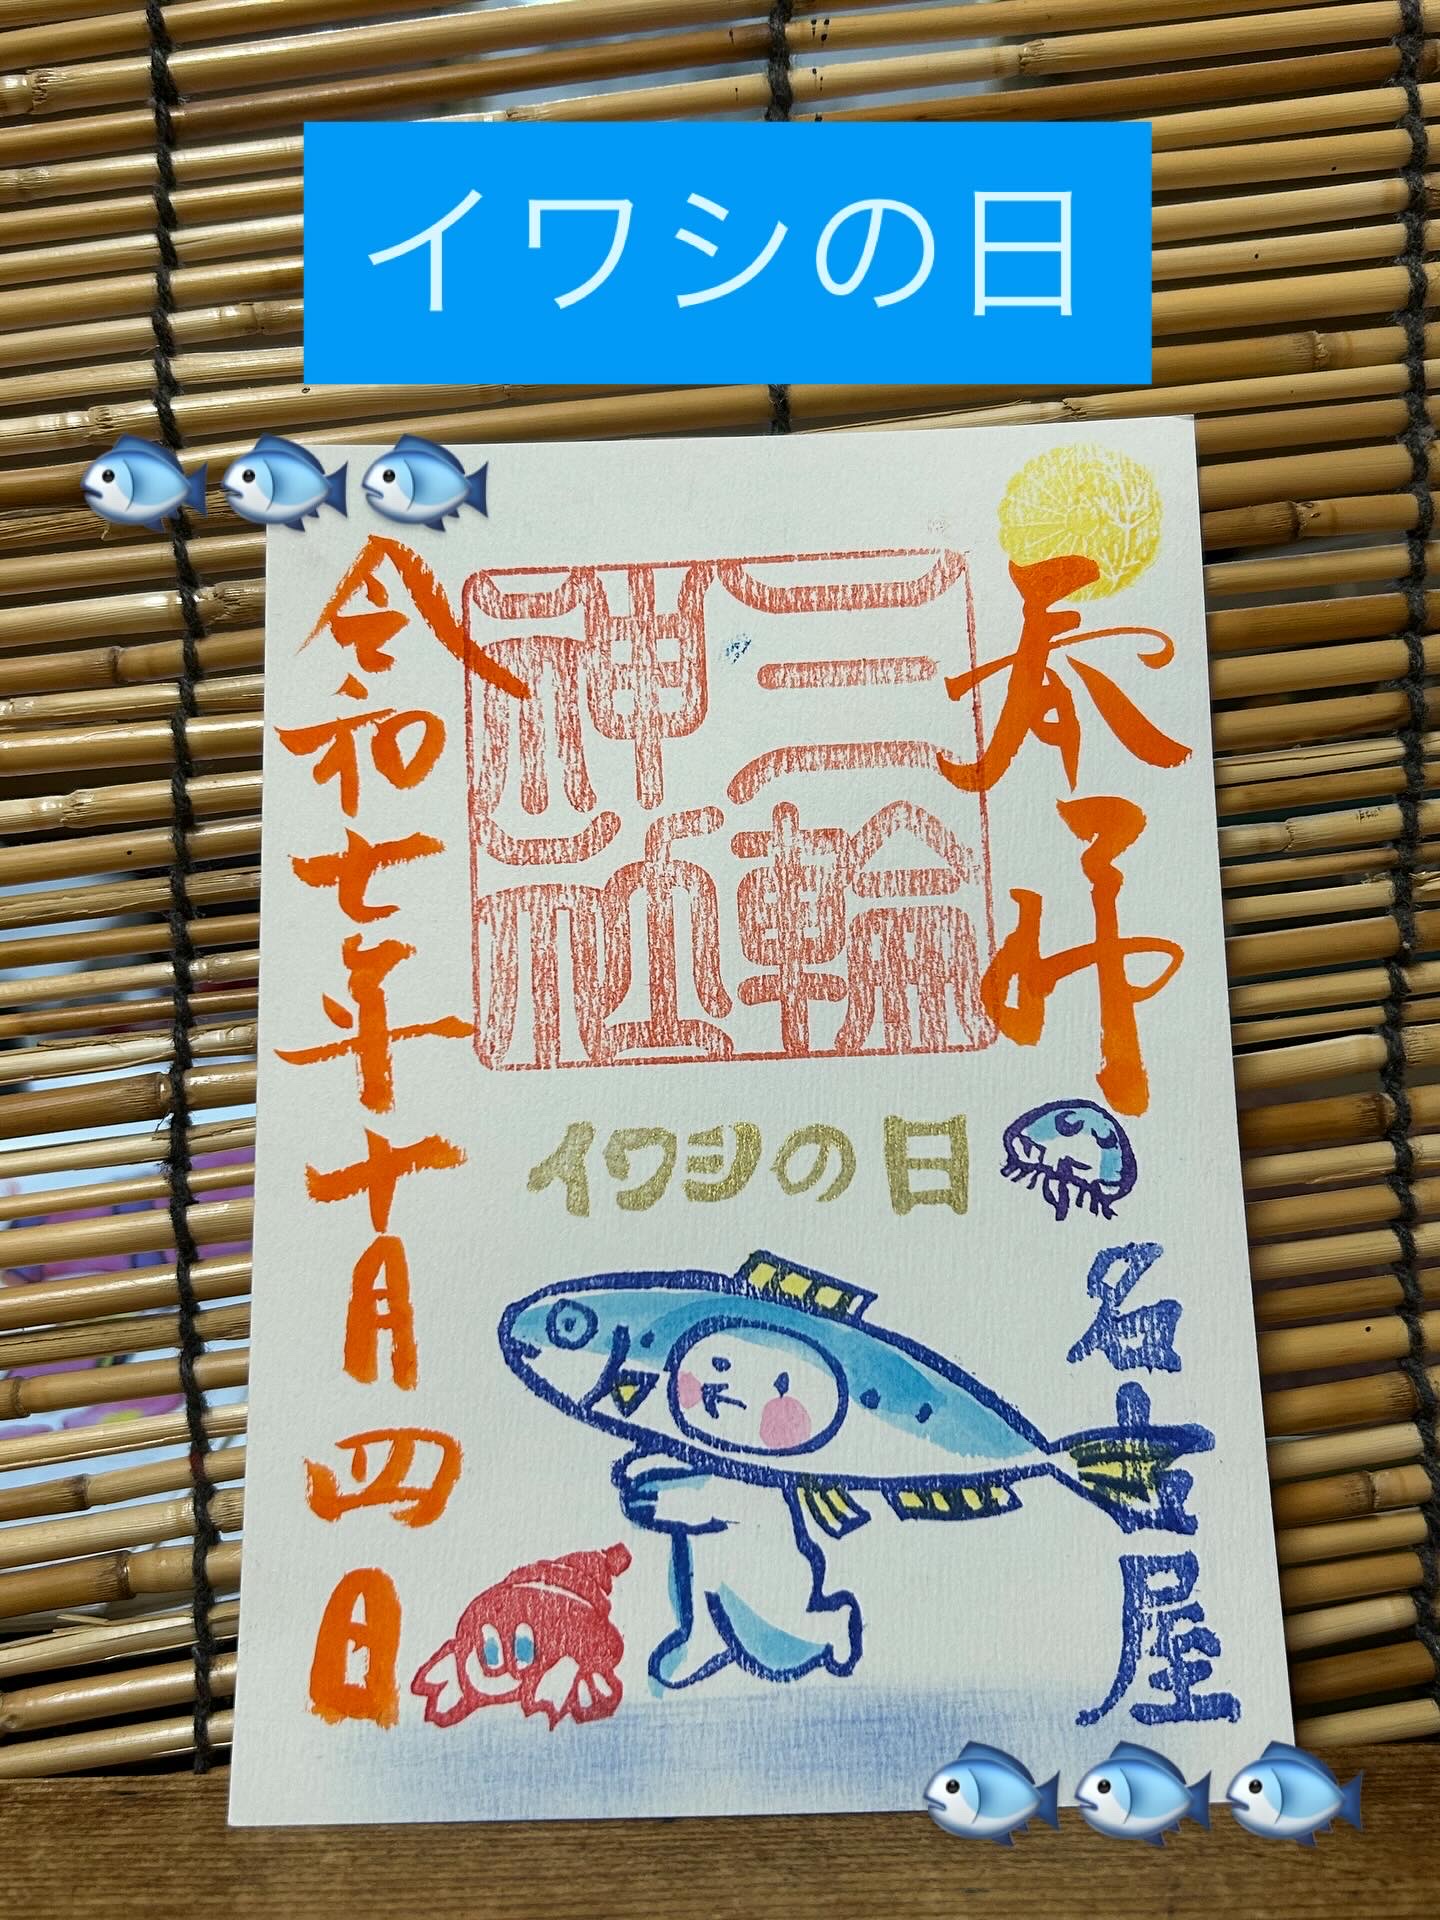 イワシの日
奉拝
三輪
神社
令和七年十月四日
イワシの日
名古屋